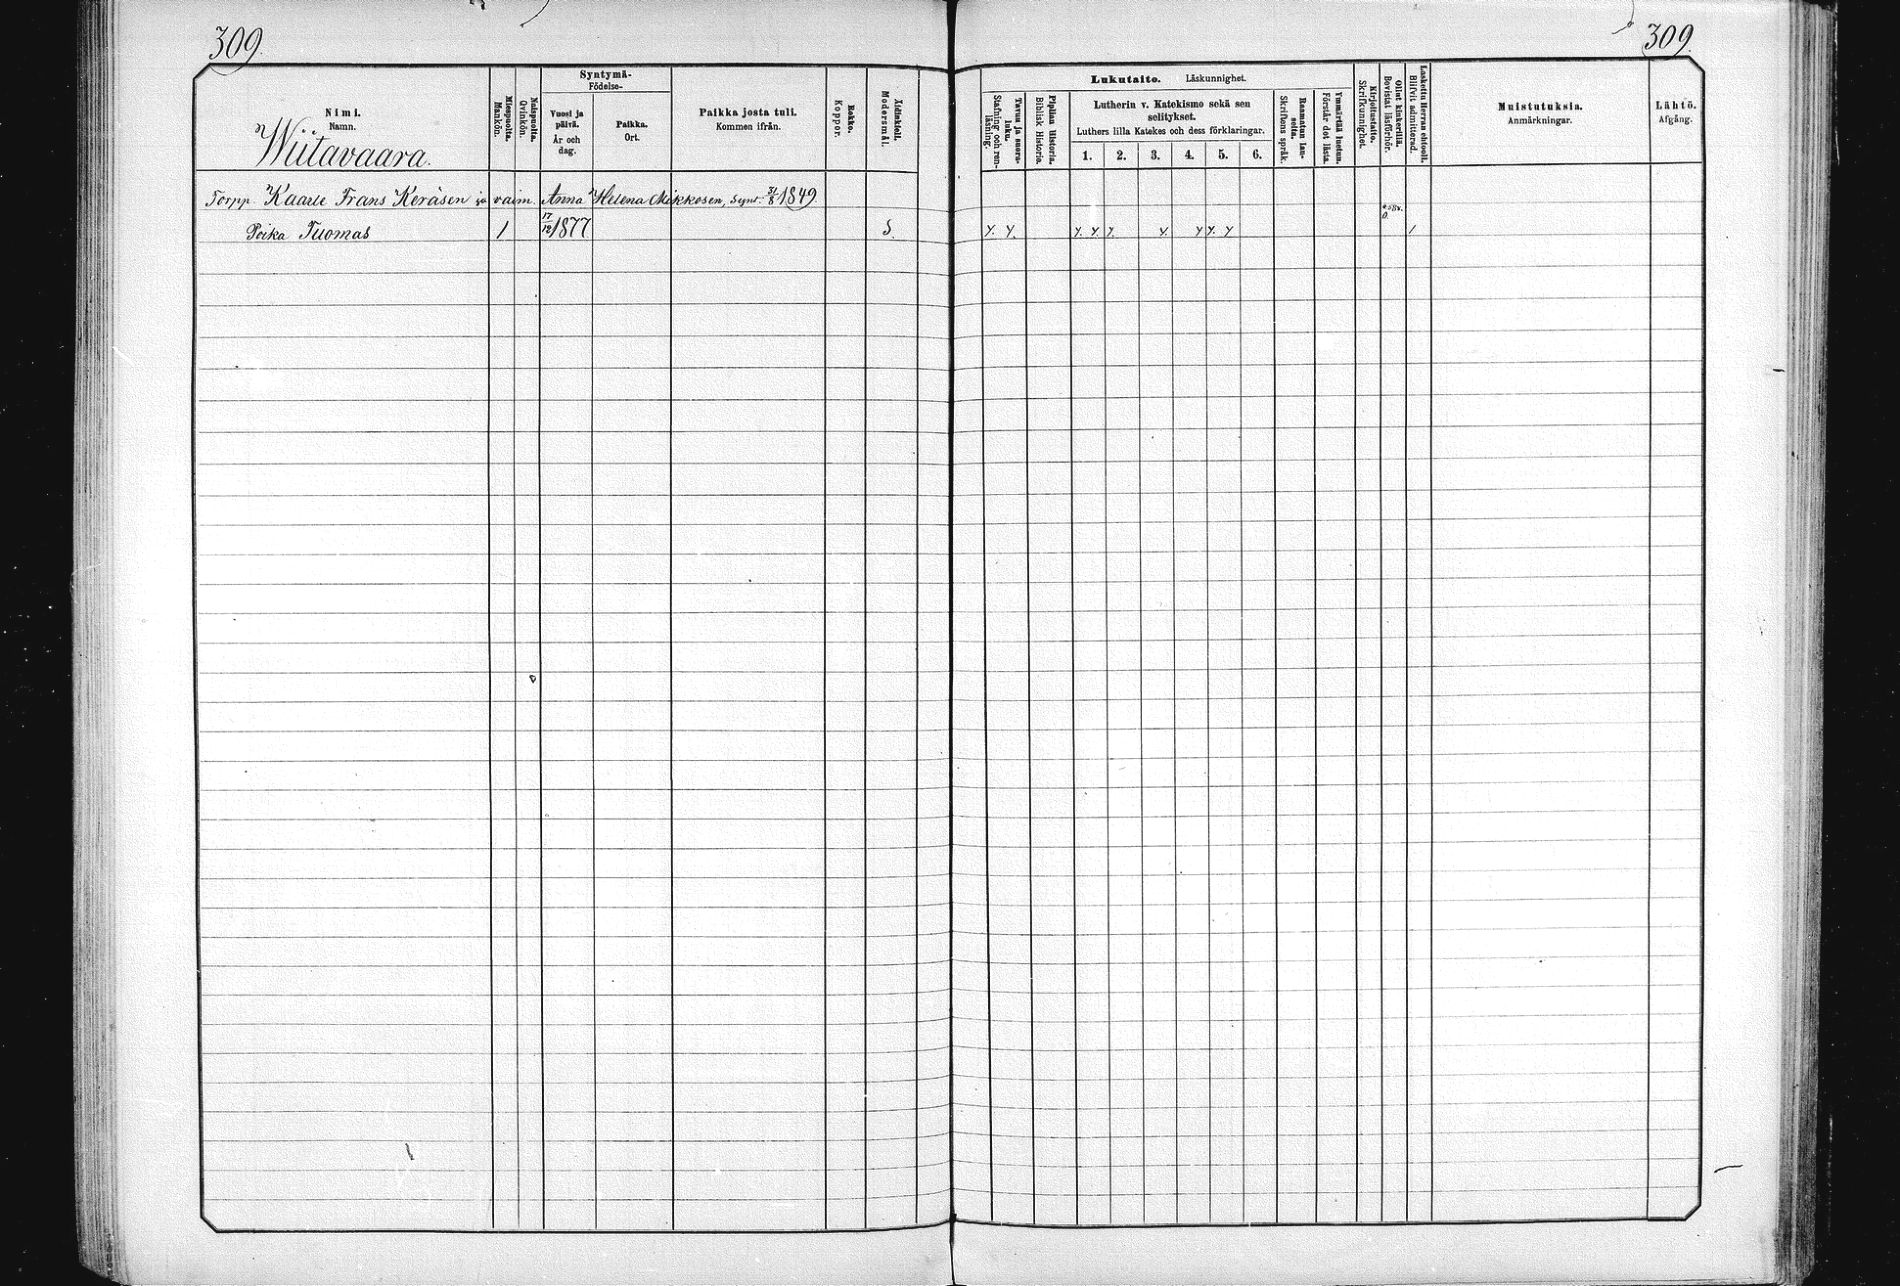 309.
309.
Nimi.
Namn.
Wiitavaara.
Miespuolta.
Mankön.
Naispuolta.
Qvinkön.
Syntymä-
Födelse-
Vuosi ja
päivä.
År och
dag.
Paikka.
Ort.
Paikka josta tuli.
Kommen ifrån.
Rokko.
Koppor.
Äidinkieli.
Modersmål.
Lukutaito. Läskunnighet.
Tavuu ja suora-
luku.
Stafning och ren-
läsning.
Piplian Historia.
Biblisk Historia.
Lutherin v. Katekismo sekä sen
selitykset.
Luthers lilla Katekes och dess förklaringar.
1. 2. 3. 4. 5. 6.
Raamatun lau-
seita.
Skriftens språk.
Ymmärtää luetun.
Förstår det lästa.
Kirjoitustaito.
Skrifkunnighet.
Ollut kinkerillä.
Bevistat läsförhör.
Laskettu Herran ehtooll.
Blifvit admitterad.
Muistutuksia.
Anmärkningar.
Lähtö.
Afgång.
Torpp. Kaarle Frans Keräsen ja vaim. Anna Helena Mikkosen, Synt. 31/8 1849
Poika Tuomas 1 17/12 1877 S. y. y. y. y y. y. y y. y 1